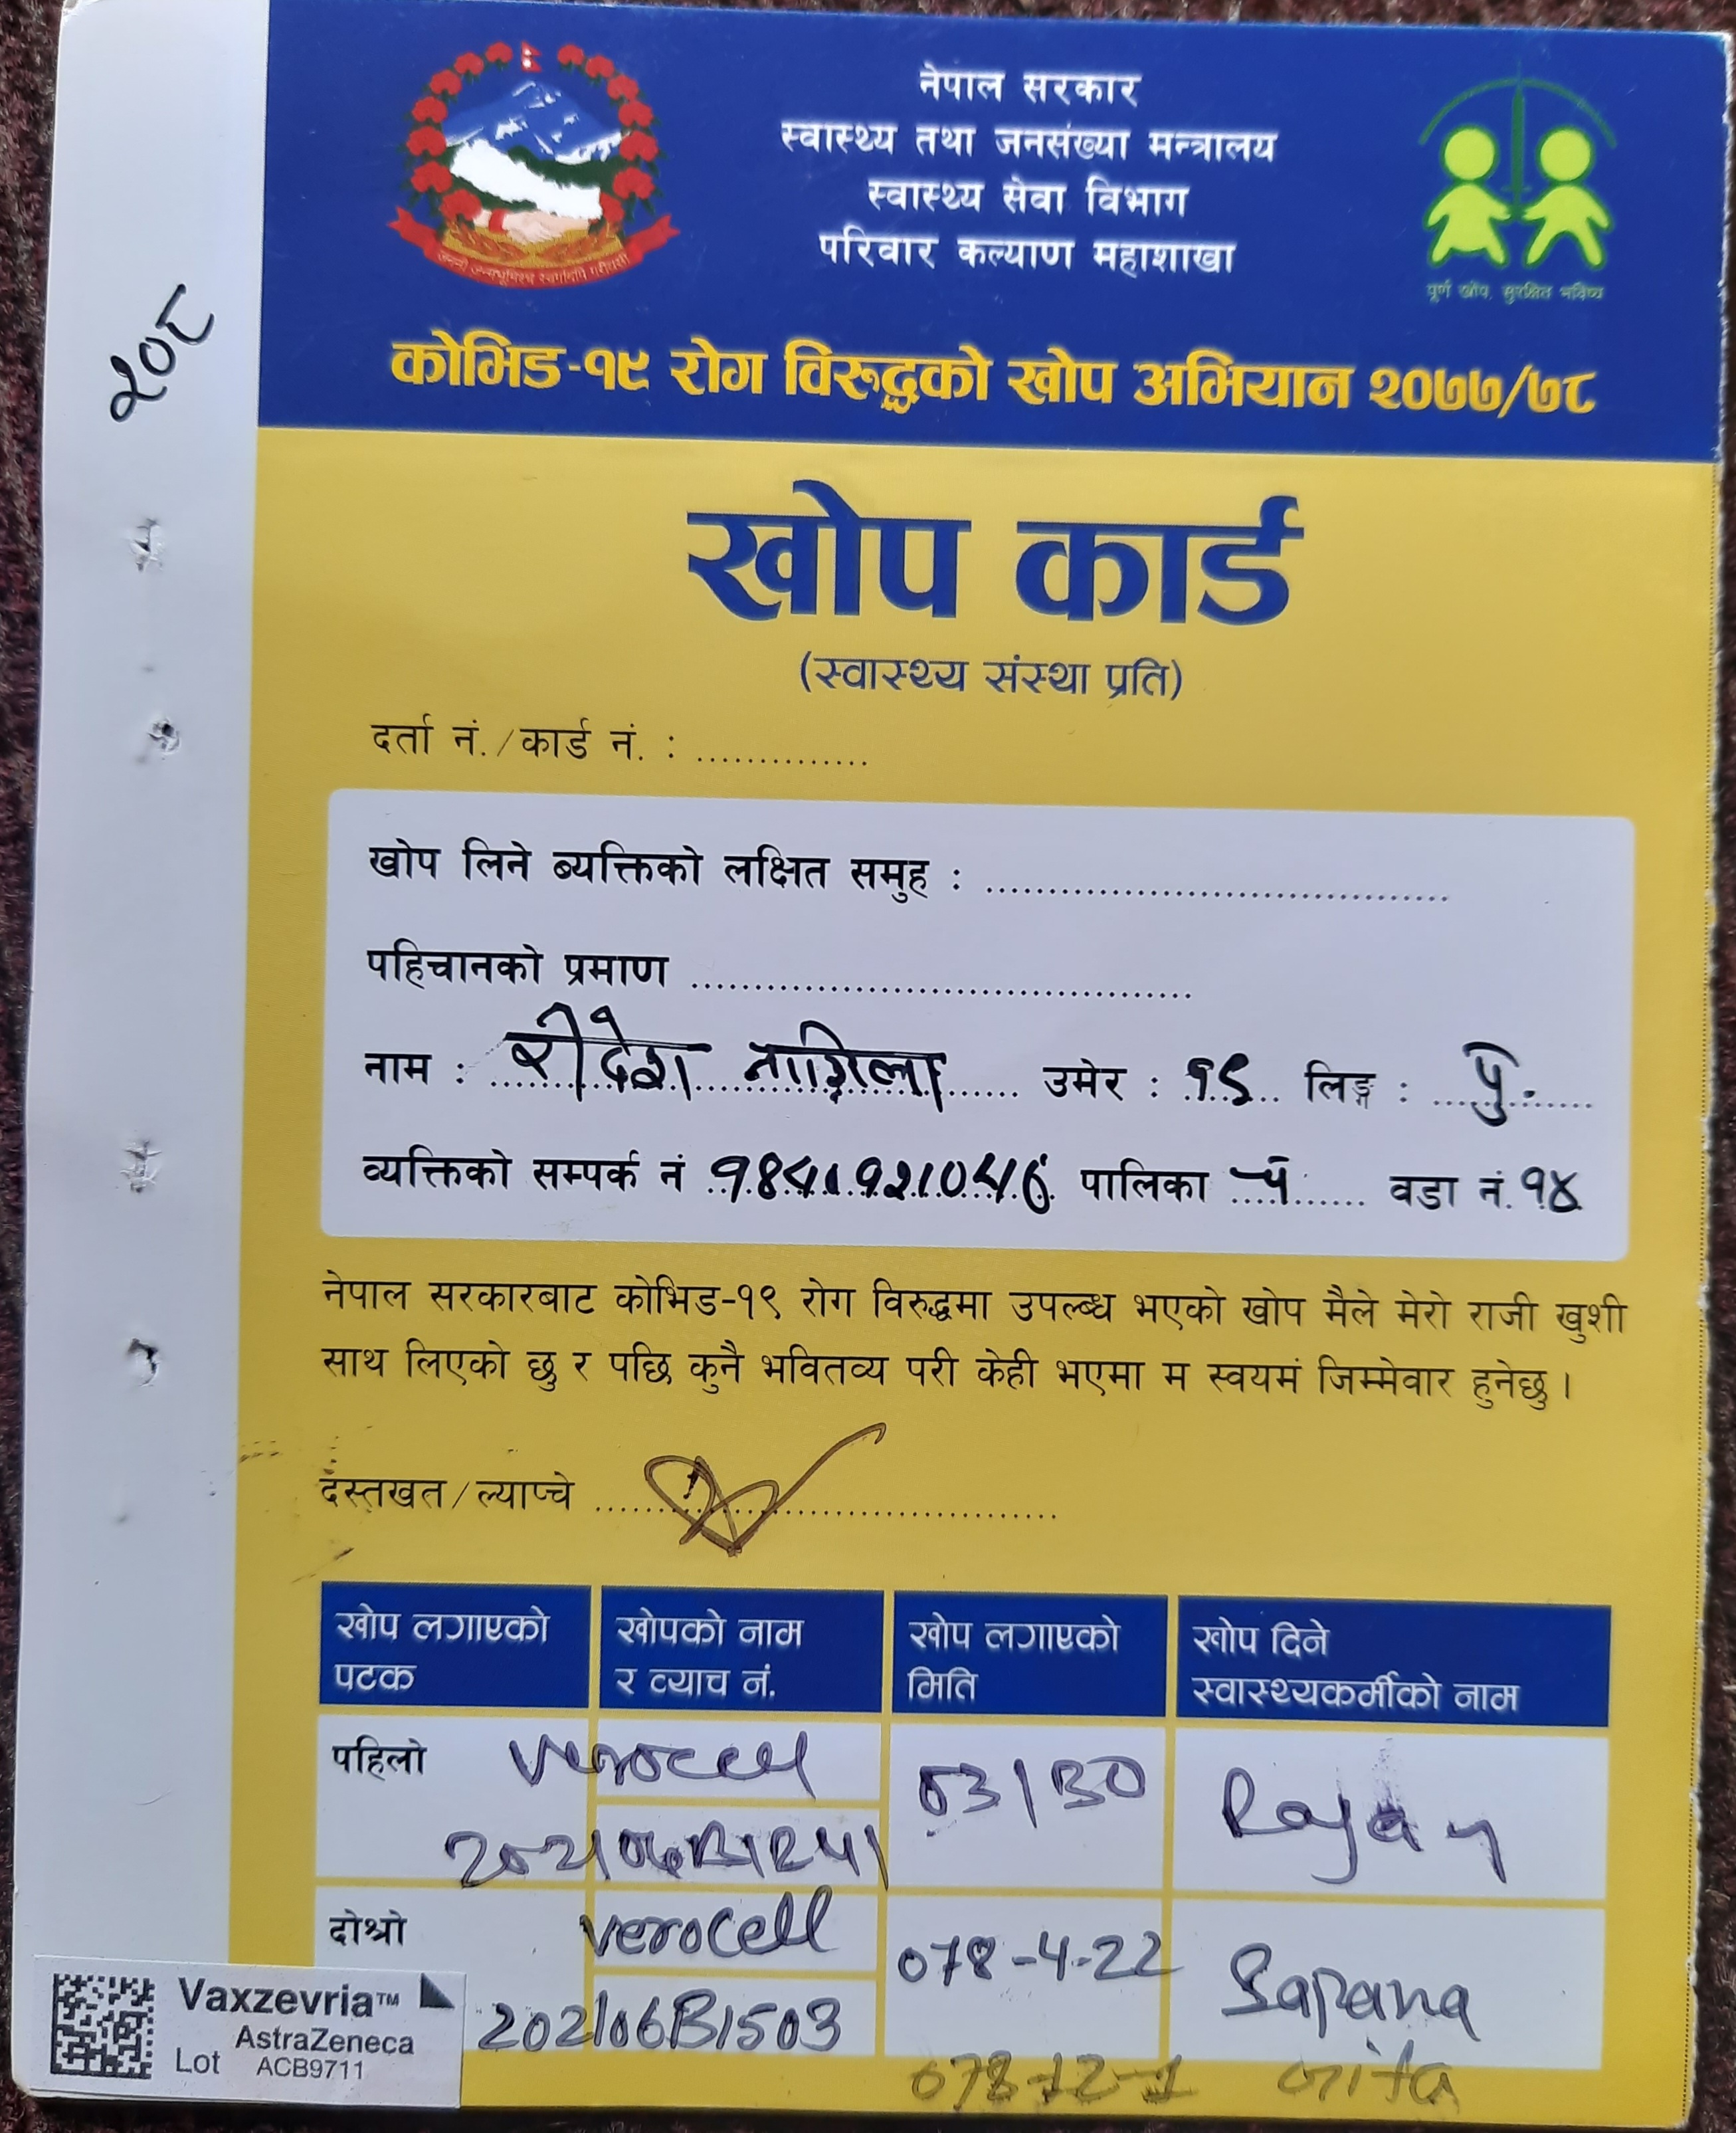 नेपाल सरकार
स्वास्थ्य तथा जनसंख्या मन्त्रालय
स्वास्थ्य सेवा विभाग
परिवार कल्याण महाशाखा
पूर्ण खोप, सुरक्षित भविष्य
कोभिड-१९ रोग विरुद्धको खोप अभियान २०७७/७८
२०८
खोप कार्ड
(स्वास्थ्य संस्था प्रति)
दर्ता नं./कार्ड नं. : ..............
खोप लिने ब्यक्तिको लक्षित समुह : ....................................
पहिचानको प्रमाण .......................................
नाम : रीदेश उमेर : १९ लिङ्ग : पु.
व्यक्तिको सम्पर्क नं 9841921046 पालिका वडा नं. १४
नेपाल सरकारबाट कोभिड-१९ रोग विरुद्धमा उपल्ब्ध भएको खोप मैले मेरो राजी खुशी
साथ लिएको छु र पछि कुनै भवितव्य परी केही भएमा म स्वयमं जिम्मेवार हुनेछु ।
दस्तखत/ल्याप्चे ....................................
खोप लगाएको पटक खोपको नाम र व्याच नं. खोप लगाएको मिति खोप दिने स्वास्थ्यकर्मीको नाम
पहिलो verocell 03/30 Rajan
दोश्रो verocell 078-4-22 Sapana
202106B1503
Vaxzevria™
AstraZeneca
Lot ACB9711
078-12-1